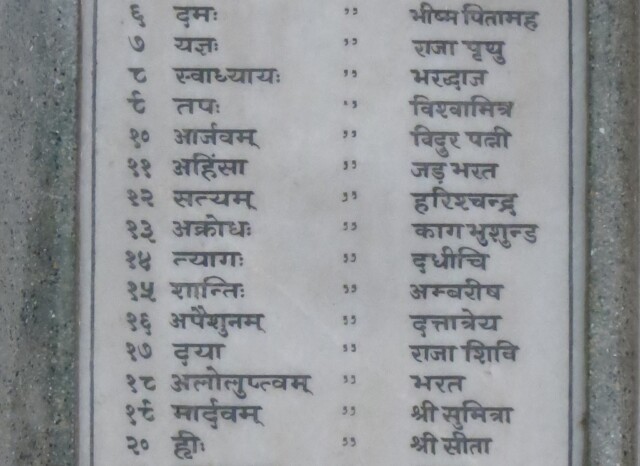 ६ दमः ,, भीष्म पितामह
७ यज्ञः ,, राजा पृथु
८ स्वाध्यायः ,, भरद्धाज
९ तपः ,, विश्वामित्र
१० आर्जवम् ,, विदुर पत्नी
११ अहिंसा ,, जड़ भरत
१२ सत्यम् ,, हरिश्चन्द्र
१३ अक्रोधः ,, काग भुशुन्ड
१४ त्यागः ,, दधीचि
१५ शान्तिः ,, अम्बरीष
१६ अपैशुनम् ,, दत्तात्रेय
१७ दया ,, राजा शिवि
१८ अलोलुप्त्वम् ,, भरत
१९ मार्दवम् ,, श्री सुमित्रा
२० ह्रीः ,, श्री सीता